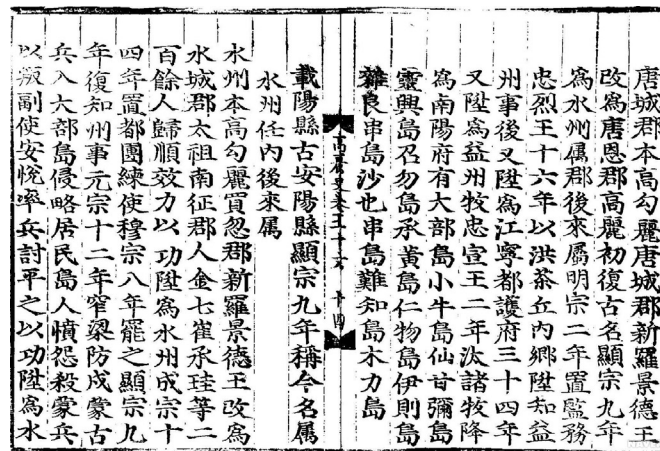 唐城郡本高勾麗唐城郡新羅景德王
改爲唐恩郡高麗初復古名顯宗九年
爲水州屬郡後來屬明宗二年置監務
忠烈王十六年以洪茶丘內鄉陞知益
州事後又陞爲江寧都護府三十四年
又陞爲益州牧忠宣王二年汰諸牧降
爲南陽府有大部島小牛島仙甘彌島
靈興島召勿島承黃島仁物島伊則島
雜良串島沙也串島難知島木力島
高麗史卷五十六 十四
載陽縣古安陽縣顯宗九年稱今名属
水州任內後來属
水州本高勾麗買忽郡新羅景德王改爲
水城郡太祖南征郡人金七崔承珪等二
百餘人歸順效力以功陞爲水州成宗十
四年置都團練使穆宗八年罷之顯宗九
年復知州事元宗十二年窄梁防戍蒙古
兵入大部島侵略居民島人憤怨殺蒙兵
以叛副使安悅率兵討平之以功陞爲水